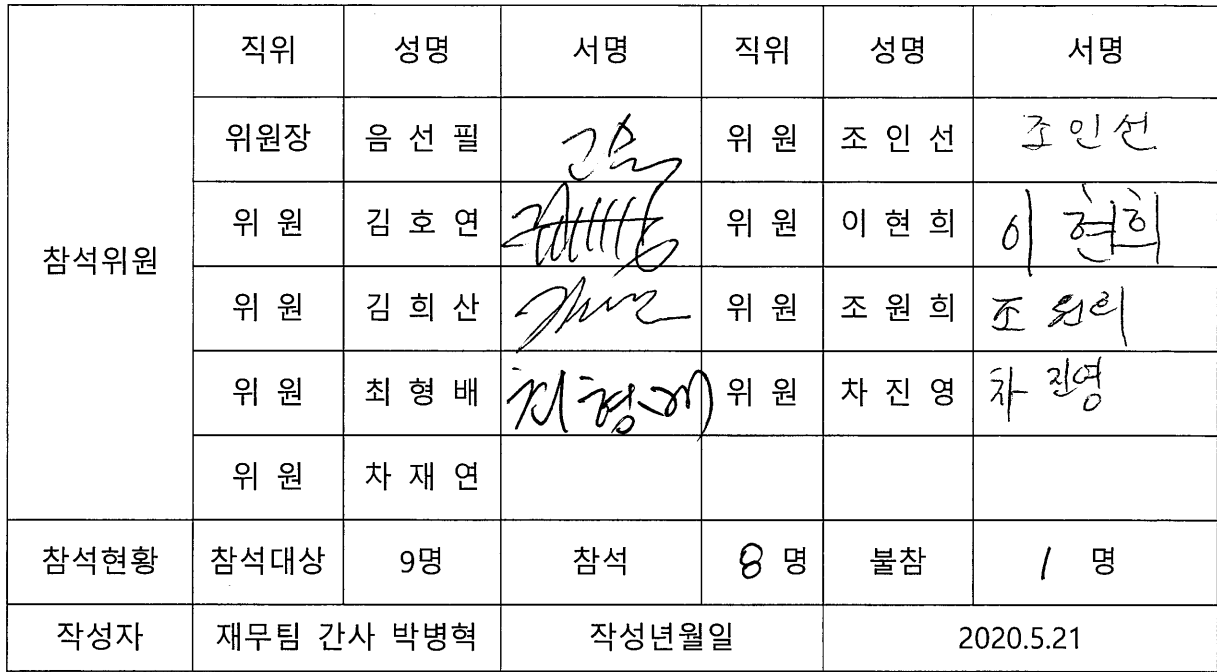 직위 성명 서명 직위 성명 서명
위원장 음 선 필 위 원 조 인 선 조인선
위 원 김 호 연 위 원 이 현 희 이 현희
참석위원
위 원 김 희 산 위 원 조 원 희 조 원희
위 원 최 형 배 최형배 위 원 차 진 영 차 진영
위 원 차 재 연
참석현황 참석대상 9명 참석 8 명 불참 1 명
작성자 재무팀 간사 박병혁 작성년월일 2020.5.21